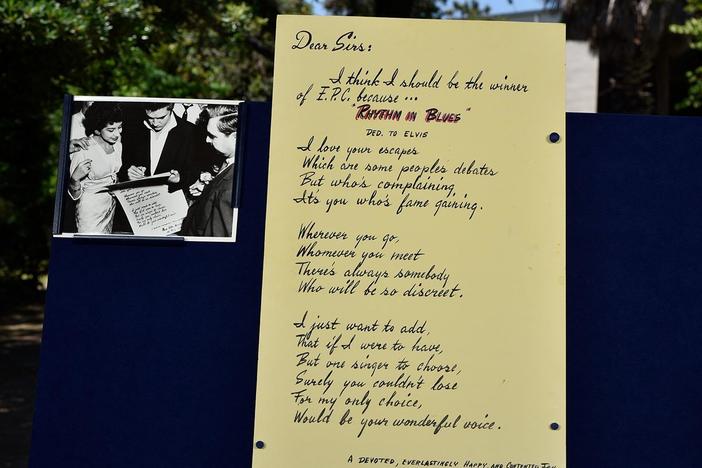 Dear Sirs:
I think I should be the winner
of E.P.C. because ...
"RHYTHM IN BLUES"
DED. TO ELVIS
I love your escapes
Which are some peoples debates
But who's complaining
It's you who's fame gaining.
Wherever you go,
Whomever you meet
There's always somebody
Who will be so discreet.
I just want to add,
That if I were to have,
But one singer to choose,
Surely you couldn't lose
For my only choice,
Would be your wonderful voice.
A DEVOTED, EVERLASTINGLY HAPPY AND CONTENTED